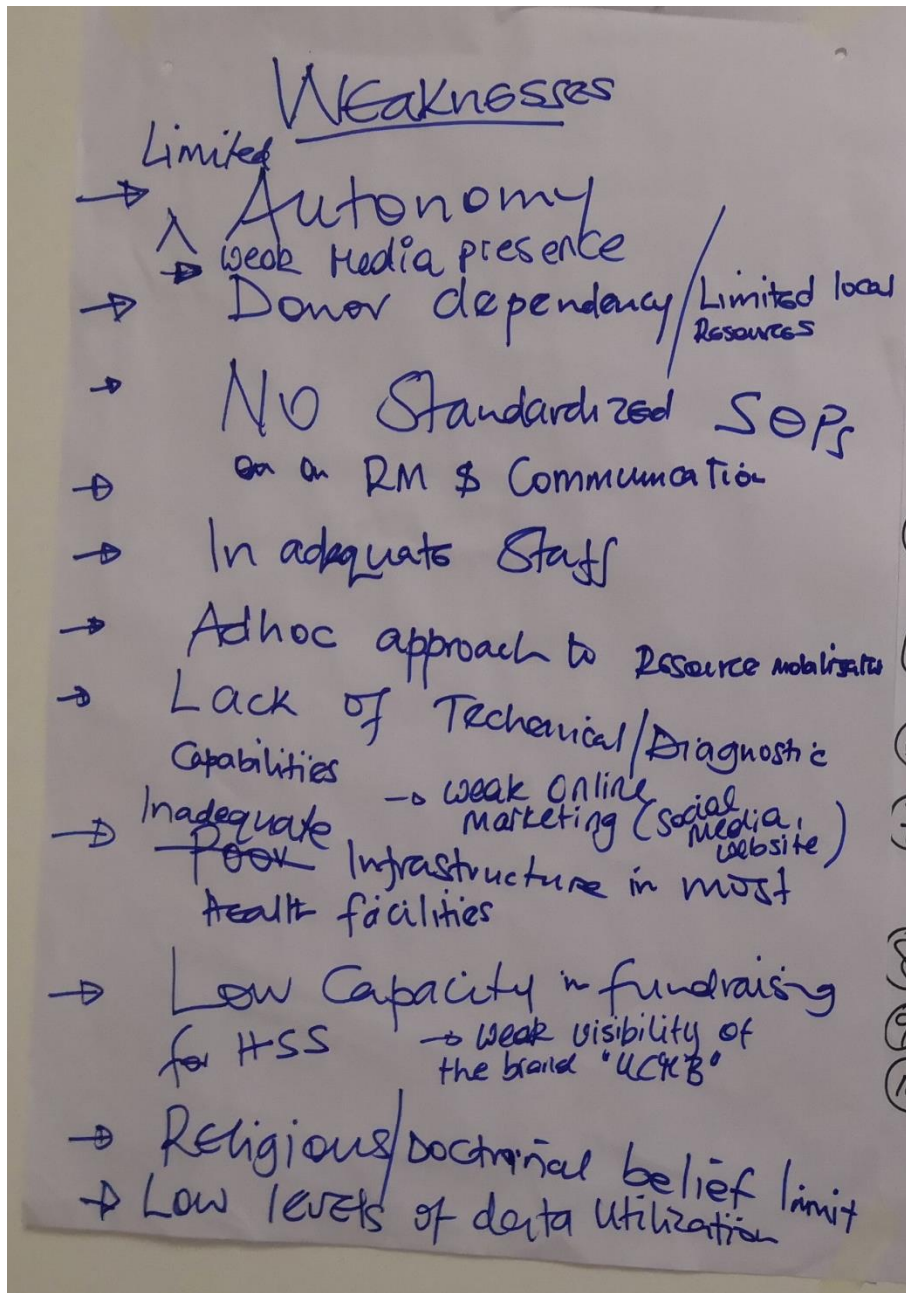 WEaknesses
Limited
→ Autonomy
→ weak Media presence
→ Donor dependency / Limited local
Resources
→ No Standardized SOPs
→ on RM & Communication
→ In adequate Staff
→ Adhoc approach to Resource mobilisation
→ Lack of Techenical/Diagnostic
Capabilities
→ weak online
marketing (social
media,
website)
Inadequate
→ Poor Infrastructure in most
Health facilities
→ Low Capacity in fundraising
for HSS
→ weak visibility of
the brand "UCMB"
→ Religious/Doctrinal belief limit
→ Low levels of data Utilization
8
9